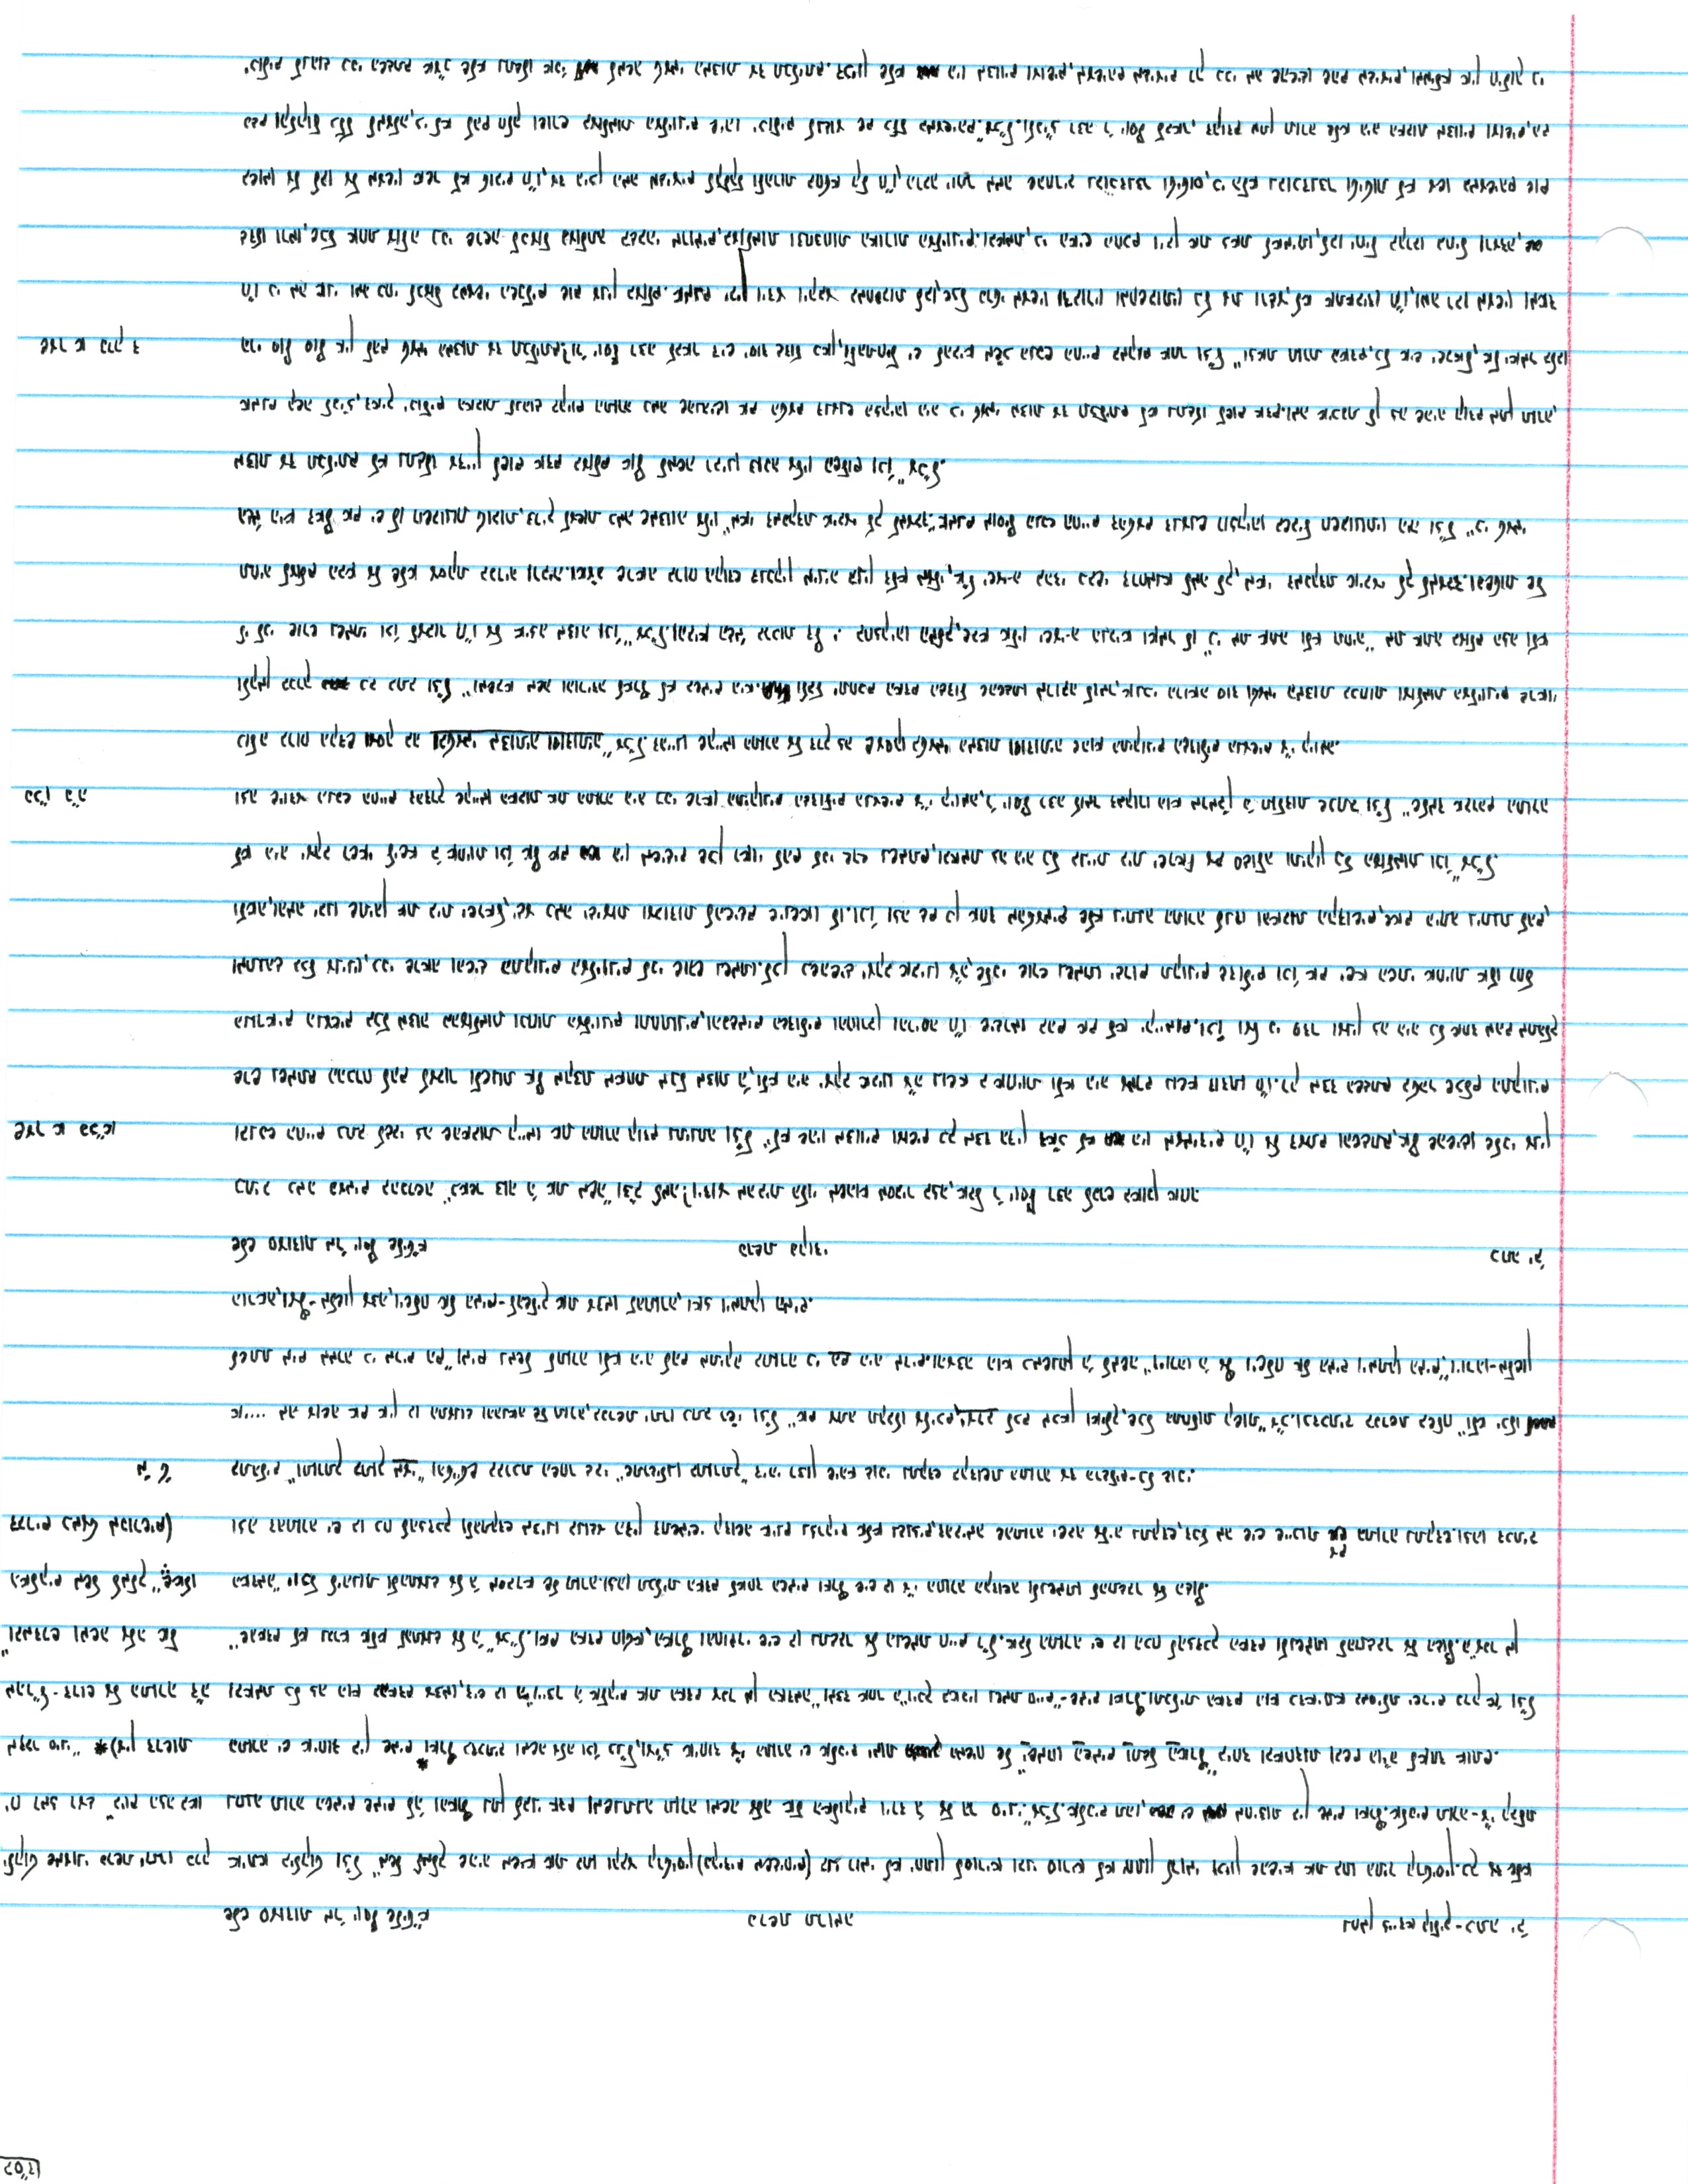 בס"ד
שלש סעודות מר' יוסף שליט"א פרשת תרומה נחמן זיידא קוליק - כתה יב'
ילקוט שמעוני פרשת יתרו פרק איתא בילקוט וז"ל "משל למלך שהיה משיא את בתו וקבע קרטיסין (פקידים משגיחים) בני רומי לא יחתון לסוריא ובני סוריא לא יחתון לרומי וכיון שהשיא את בתו התיר קרטיסין. כך עד שלא
יח רמז רעג "ביום הזה באו נתנה תורה השמים שמים לה' והארץ נתן לבני אדם ומשנתנה תורה ומשה עלה אל האלוקים וירד ה' על הר סיני." עכ"ל. אלפים תהו, יש מחיצות בין שמים וארץ. אלפים תורה - ע"י קבלת
מדבר סיני" *(עין דרשות התורה יש איחוד בין שמים וארץ* כדכתיב ומשה עלה וכו' כנ"ל, ועי"ז איחוד ע"י התורה יש אלפים ימות המשיח של "ישמחו השמים ותגל הארץ" ביחד ובאחדות ובשם הוי"ה לאחד אותם.
מהר"ל - דרוש על התורה ד"ה ובאמת כל זה הוא בהאדם עצמו, דיש בו ה"וייצר ה' אלקים את האדם עפר מן האדמה" ומצד אחר ה"ויפח באפיו נשמת חיים" - שמים וארץ. ותכלית האדם הוא כדאיתא במסילת ישרים פרק א' וז"ל
"ובמדרש ומשה עלה אל "שהאדם לא נברא אלא להתענג על ה'" עכ"ל. ואם האדם חוטא, הארץ והחומרי שיש בו נתגבר על הנשמת חיים ר"ל. אבל התורה יש בו הכח להזדכך האדם ולנשמתו להתגבר על הגוף. ה"עפר מן
האלקים משל למלך" שאלו האדמה" יוכל ליהנות ולהתענג על ה' מסברא של תורה. וזהו תכלית האדם לאחד השמים וארץ שיש בו ע"י התורה הקדושה ולנשמתו להתגבר על הגוף.
דברים כמעט מפורשים) וזה דהתורה יש בו כח להזדכך ולהתקדש מצינו בנוגע הדין דתשמישי קדושה אינם נזרקים אלא נגנזים, דהבימה שהתורה ישבה עליה נתקדש, דכל מה שיש שייכות עם התורה נתקדש. וזהו דכתיב
מ' ט' בתהלים "ותורתך בתוך מעי" והטייטש בברכת השחר גבי "שתרגילנו בתורתך" דיהי רצון שיהא גופי נתקדש בקדושת התורה עד הרגלים - כל גופי.
אי.... מה עושה אם אין בו התענוג וההנאה של תורה, בפרשת יתרו כתב רש"י וז"ל "אם עתה תקבלו עליכם, יערב לכם מכאן ואילך, שכל התחלות קשות" ע"כ. וכדכתיב בפרשת בשלח "ולא יכלו
לשתת מים ממרה כי מרים הם" ומים נמשל לתורה ולא היה להם מתיקה בתורה כי הם היה מרים. והעצה הוא כמשנתן ה' למשה "ויורהו ה' עץ וישלח אל המים וימתקו המים", ויורהו - מלשון
הוראה, ועץ - מלשון עצה, וישלח אל המים - להשליך את עצמו להתורה, ואז וימתקו המים.
שלש סעודות מר' יוסף שליט"א פרשת פקודי כתה יב'
כתיב כמה פעמים בהפרשה "כאשר צוה ה' את משה" וצ"ב למה? וידוע מהבית הלוי משהוא מסביר בזה, אבל ר' יוסף רצה לפרש באופן אחר
שער א פכ"א ובנפש החיים כתב לגבי זה שהאבות קיימו את התורה קודם נתינתה וז"ל "לא שהיו מצווים ועושים כך מצד הדין דא"כ לא היו מעמידים ח"ו על דעתם והשגתם, אף שהשיגו שלפי ענין
שרש נשמתם ההכרח להם לעבור ולשנות אף מקצת מאחת מכל מצות ה', ולא היה יעקב אבינו ע"ה נושא ב אחיות ולא היה עמרם נושא דודתו ח"ו. רק מצד השגתם בטהר שכלם התקונים
הנוראים הנעשים בכל מצוה בהעולמות וכחות העליונים ותחתונים, והפגמים הגדולים והחורבן והריסה ח"ו שיגרמו בהם אם לא יקיימום. וכו' ועל פי סדר וענין זה היה כל אחד מהם מתהלך
ומתנהג בכל עניניו, כפי שראה והשיג התקונים העליונים לפי שורש נשמתו. לכן כשהשיג יעקב אבינו ע"ה, שלפי שורש נשמתו יגרום תקונים גדולים וכו' אם ישא השתי אחיות אלו רחל
ולאה, והמה יבנו שתיהן את בית ישראל, יגע כמה יגיעות ועבודות להשיגם שינשאו לו. וכו' וזה גם כן אחד מהטעמים שלא ניתנה התורה לנח והאבות הקדושים, שאם היתה ניתנת להם,
לא היה יעקב רשאי לישא ב' אחיות וכו' אף אם היו משיגים שכן ראוי להם לפי שרש נשמתם, ובאמת זה היה כל בניית בית ישראל עם סגולה ותיקון כל העולמות וכו'" עכ"ל.
פכ"ו פ"ה וזה שיודע הנפש החיים דהדרך שקיימו האבות את התורה היה כפי שראו התיקונים הגדולים הנעשים ע"י קיומה, ר' יוסף רצה לומר דמקורו הוא מרמב"ן פ' תולדות שכתב וז"ל "שלמד אברהם התורה
כולה ברוח הקדש ועסק בה ובטעמי מצותיה וסודותיה" עכ"ל. דהיינו שקיימו התורה על דרך זה שעסקו בטעמי המצות וסודותיה שהוא התיקונים הגדולים הנעשים ע"י קיומה.
ולקמן בפרק כב כתב וז"ל "ומשבא משה והורידה לארץ לא בשמים היא. ולבל יתחכם האדם הגדול שהשגתו מרובה לומר, אנכי הרואה סוד וטעמי המצות בכחות ועולמות העליונים שראוי
לי לפי שורש נשמתי וכו' לעבור ח"ו על איזה מצוה וכו'" עכ"ל. והביא הגמ' ברכות דף י. בחזקיהו המלך, שבא אליו ישעיה הנביא ואמר לו "כי מת אתה ולא תחיה" מת אתה בעולם הזה ולא
תחיה לעולם הבא על שלא עסקת בפריה ורביה. ואע"פ שראה ברוח הקודש דנפקין מיניה בנין דלא מעלי, א"ל ישעיה בהדי כבשי דרחמנא למה לך, מאי דמפקדת איבעי לך למעבד. ופשטות של
הגמ' היא דאף אם יש לו חשבונות טובות, צריך לעשות כמה שמצווה עליו "מאי דמפקדת איבעי לך למעבד." אמנם מוסיף הנפש החיים דהטעם דנענש חזקיהו בשביל חשבונותיו היה וז"ל "כי טעמי
מצות עד תכליתם לא נתגלו עדיין לשום אדם בעולם אף למשה רבינו נוכה עליו השלום וכו'" עכ"ל.
אמנם קשה לפי"ז, דאיך יכולים האבות לנהוג בקיום התורה כמה שהשיגו אם הטעם דנענש חזקיהו היה כי טעמי מצות עד תכליתם לא נתגלו לשום אדם. ומה איכפת לן זה שהיה קודם מתן תורה,
שער א פרק ד הרי סוף סוף אין להם טעמי המצות עד תכליתם? ור' יוסף רצה לבאר דיש יסוד גדול כאן, ולהתחיל יש להביא מש"כ הנפש החיים במקום אחר וז"ל "וזאת תורת האדם, כל איש ישראל, אל יאמר בלבו
ח"ו כי מה אני ומה כחי לפעול במעשי השפלים שום ענין בעולם. אמנם יבין וידע ויקבע במחשבות לבו, שכל פרטי מעשיו ודבוריו ומחשבותיו כל עת ורגע, לא אתאבידו ח"ו, ומה רבו מעשיו ומאד
גדלו ורמו, שכל אחת עולה כפי שרשה לפעול פעולתה בגבהי מרומים, בעולמות וצחצחות האורות העליונים. ובאמת, כי האיש החכם ויבין את זאת לאמיתו, לבו יחיל בקרבו בחיל ורעדה,
בשומו על לבו על מעשיו אשר לא טובים ח"ו, עד היכן המה מגיעים לקלקל ולהרות בחטא קל ח"ו, הרבה יותר ממה שהחריב נבוכדנצר וטיטוס, כי הלא נבוכדנצר וטיטוס לא עשו במעשיהם שום
פגם וקלקול כלל למעלה, כי לא להם חלק ושורש בעולמות העליונים שיהו יכולים לנגוע שם כלל במעשיהם." עכ"ל. ולפי"ז רצה ר' יוסף לבאר, דקודם מתן תורה שלא היה האבות מצווים ועושים, הם
יכולים לנהוג כפי השגתם אע"פ שלא נתגלו אפי' למשה טעמי המצות עד תכליתם. דכיון שלא היו מצווים ועושים, מעשיהם מגיעים רק כפי מה שהשיגו שהם מגיעים, וממילא אין חילוק כי